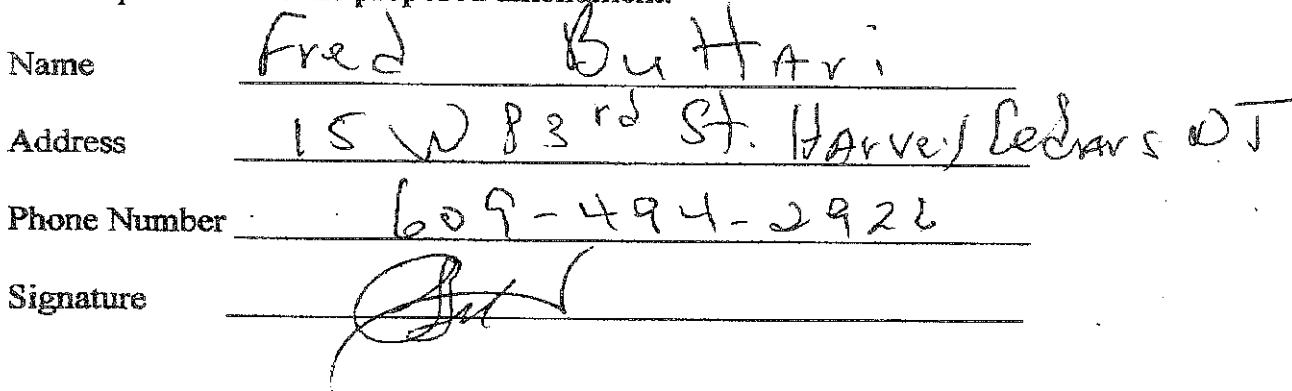 proposed amendment.
Name Fred Buttari
Address 15 W 83rd St. Harvey Cedars NJ
Phone Number 609-494-292
Signature